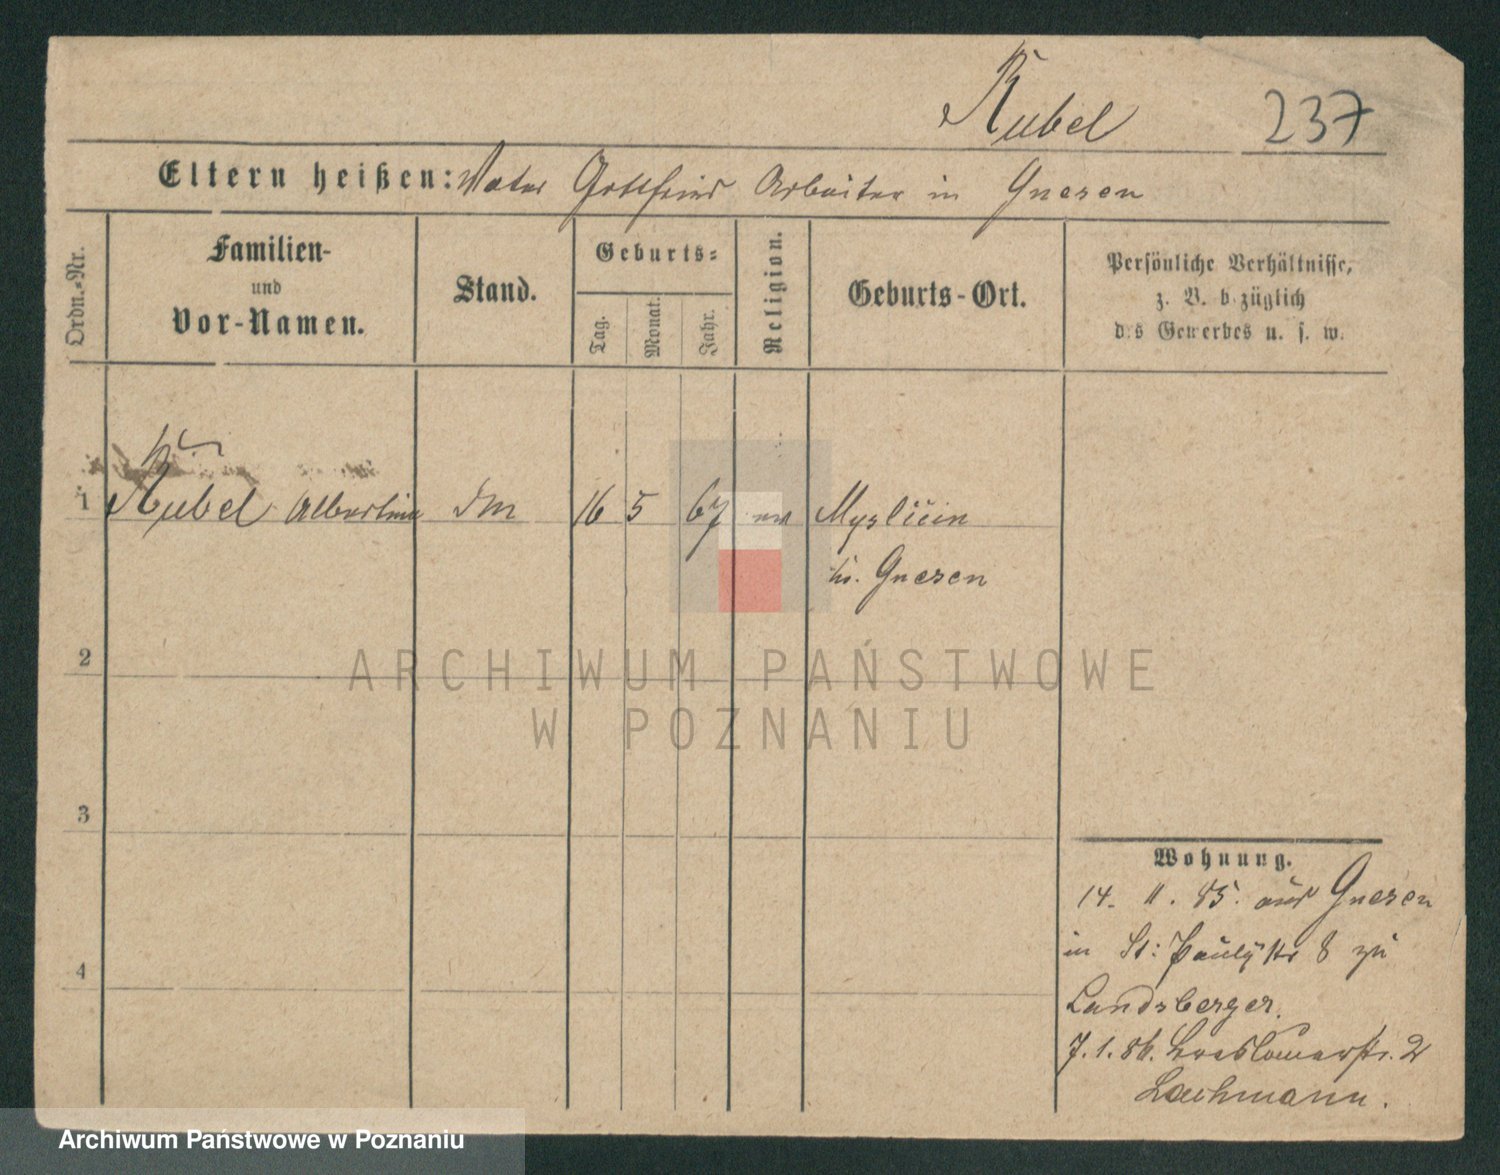 Rubel 237
Eltern heißen: Vater Gottfried Arbeiter in Gnesen
Ordn.-Nr.
Familien-
und
Vor-Namen.
Stand.
Geburts-
Tag.
Monat.
Jahr.
Religion.
Geburts-Ort.
Persönliche Verhältnisse,
z. B. bezüglich
des Gewerbes u. s. w.
1 Rubel Albertine 16 5 67 ev Mysličin
Gnesen
2
3
4
ARCHIWUM PAŃSTWOWE
W POZNANIU
Wohnung.
14. 11. 85. aus Gnesen
in St: Paulystr 8 zu
Landsberger.
7. 1. 86. Breslauerstr. 2
Lachmann.
Archiwum Państwowe w Poznaniu